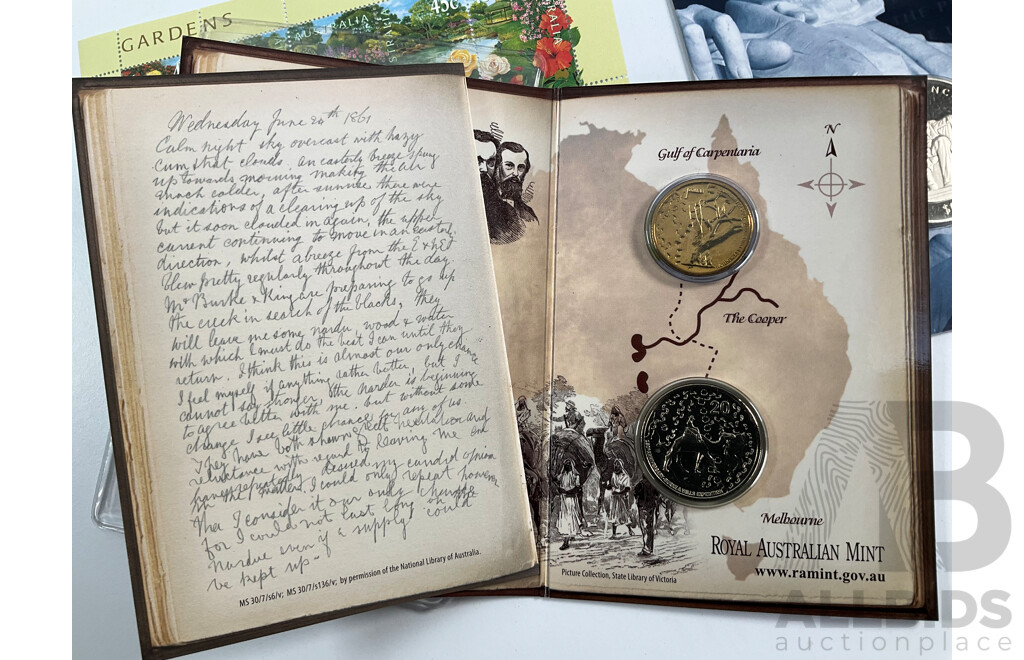 GARDENS
AUSTRALIA
45c
AUSTRALIA
Wednesday June 26th 1861
Calm night sky overcast with hazy
cum strat clouds. An easterly breeze sprung
up towards morning making the air
much colder, after sunrise there were
indications of a clearing up of the sky
but it soon clouded in again, the upper
current continuing to move in an easterly
direction, whilst a breeze from the E & NE
blew pretty regularly throughout the day
Mr Burke & King are preparing to go up
the creek in search of the blacks, they
will leave me some nardu, wood & water
with which I must do the best I can until they
return. I think this is almost our only chance
I feel myself if anything rather better, but I
cannot say stronger, the nardoo is beginning
to agree better with me, but without some
change I see little chance for any of us
They have both shown great hesitation and
reluctance with regard to leaving me and
have repeatedly desired my candid opinion
in the matter. I could only repeat however
that I consider it our only chance
for I could not last long on the
nardue even if a supply could
be kept up
MS 30/7/s6/v; MS 30/7/s136/v; by permission of the National Library of Australia.
Gulf of Carpentaria
N
The Cooper
20
Melbourne
ROYAL AUSTRALIAN MINT
www.ramint.gov.au
Picture Collection, State Library of Victoria
AB
ALLBIDS
auctionplace